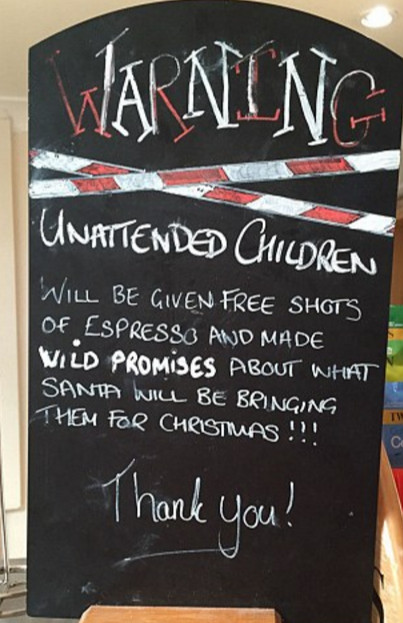 WARNING
UNATTENDED CHILDREN
WILL BE GIVEN FREE SHOTS
OF ESPRESSO AND MADE
WILD PROMISES ABOUT WHAT
SANTA WILL BE BRINGING
THEM FOR CHRISTMAS !!!
Thank you!